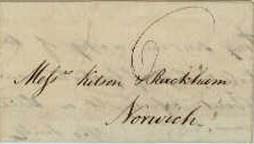 Messrs Kitson & Rackham
Norwich